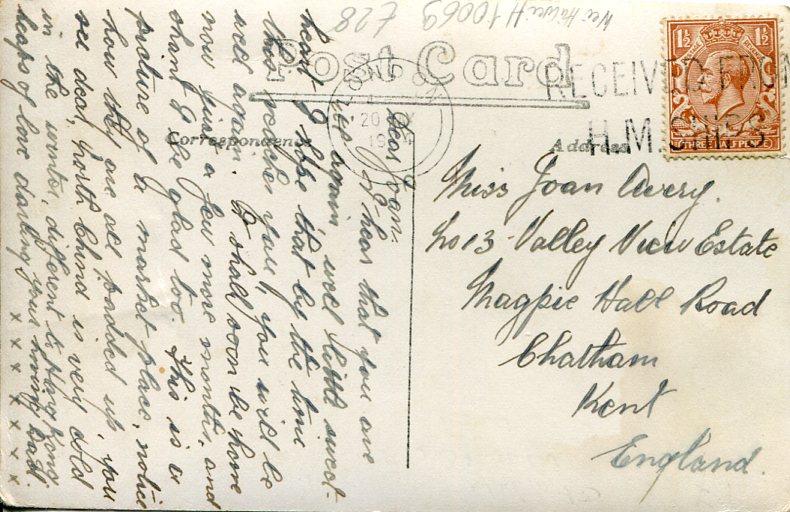 Wei Hai Wei H10069 £28
Post Card
Correspondence
Address
LONDON
20
19
RECEIVED FROM
H.M. SHIPS
1½ 1½
THREE HALF PENCE
Dear Joan.
I hear that you are
ill again, well little sweet-
heart I hope that by the time
this reaches you, you will be
well again. I shall soon be home
now just a few more months, and
shant I be glad too. This is a
picture of a market place, notice
how they are all padded up, you
see dear, North China is very cold
in the winter, different to Hong Kong
heaps of love darling your loving Dad
x x x x x x x
Miss Joan Avery.
No 13 Valley View Estate
Magpie Hall Road
Chatham
Kent
England.